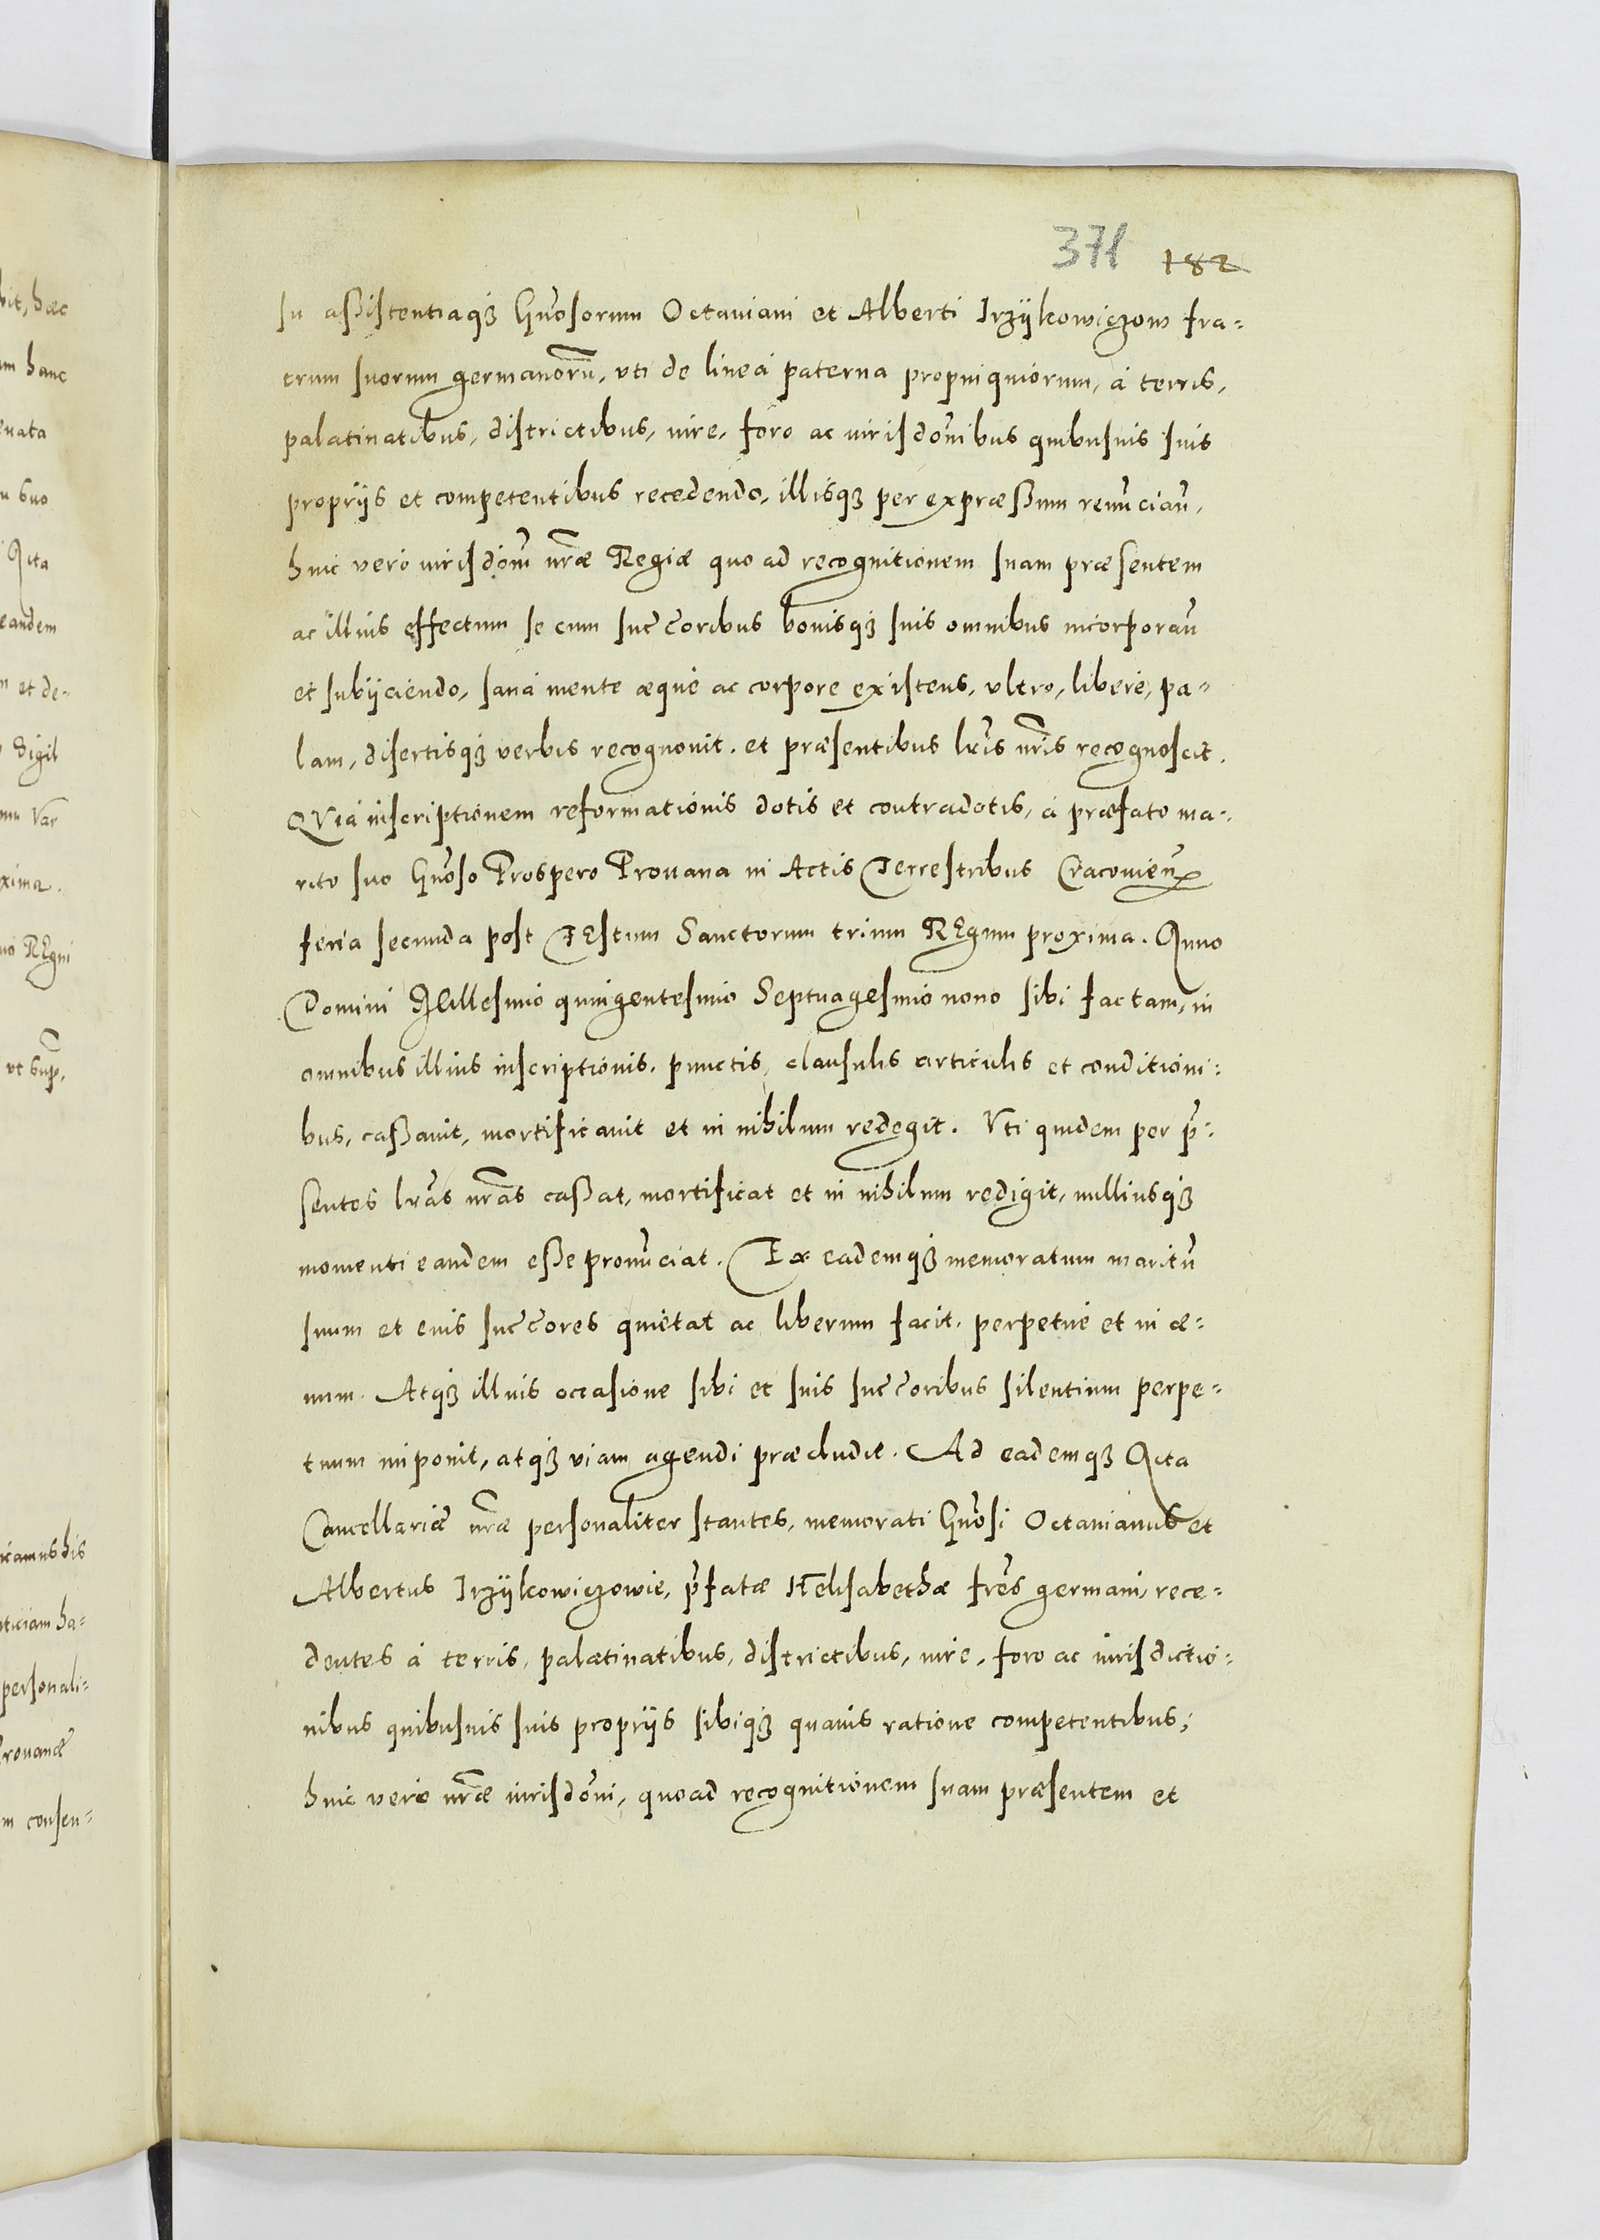 371 182
su aßistentiaqȝ Gn̄osorum Octauiani et Alberti Irzÿkowiczow fra-
trum suorum germanorū, vti de linea paterna propinquiorum, à terris,
palatinatibus, districtibus, iure, foro ac iurisdōnibus quibusuis suis
proprijs et competentibus recedendo, illisqȝ per expræßum renūciañ,
huic verò iurisdōni nr̄æ Regiæ quo ad recognitionem suam præsentem
ac illius effectum se cum succ̄oribus bonisqȝ suis omnibus incorporañ
et subijciendo, sana mente æque ac corpore existens, vltro, liberè, pa-
lam, disertisqȝ verbis recognouit. et præsentibus lr̄is nr̄is recognoscit.
QVia inscriptionem reformationis dotis et contradotis, à præfato ma-
rito suo Gn̄oso Prospero Prouana in Actis Terrestribus Cracouieñ
feria secunda post FEstum Sanctorum trium REgum proxima. Anno
Domini Millesimo quingentesimo Septuagesimo nono sibi factam, in
omnibus illius inscriptionis, punctis, clausulis articulis et conditioni-
bus, caßauit, mortificauit et in nihilum redegit. Vti quidem per p̄-
sentes lr̄as nr̄as caßat, mortificat et in nihilum redigit, nulliusqȝ
momenti eandem eße pronūciat. Ex eademqȝ memoratum maritū
suum et eius succ̄ores quietat ac liberum facit. perpetuè et in æ-
uum. Atqȝ illius occasione sibi et suis succ̄oribus silentium perpe-
tuum imponit, atqȝ viam agendi præcludit. Ad eademqȝ Acta
Cancellariæ nr̄æ personaliter stantes, memorati Gn̄osi Octauianus et
Albertus Irzÿkowiczowie, p̄fatæ HElisabethæ fr̄es germani, rece-
dentes à terris, palatinatibus, districtibus, iure, foro ac iurisdictio-
nibus quibusuis suis proprijs sibiqȝ quauis ratione competentibus;
huic verò nr̄æ iurisdōni, quoad recognitionem suam præsentem et